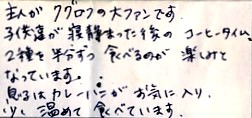 主人が クグロフの大ファンです。
子供達が寝静まった後の コーヒータイムに
2種を半分づつ食べるのが 楽しみと
なっています。
息子はカレーパンがお気に入り。
少し温めて食べています。